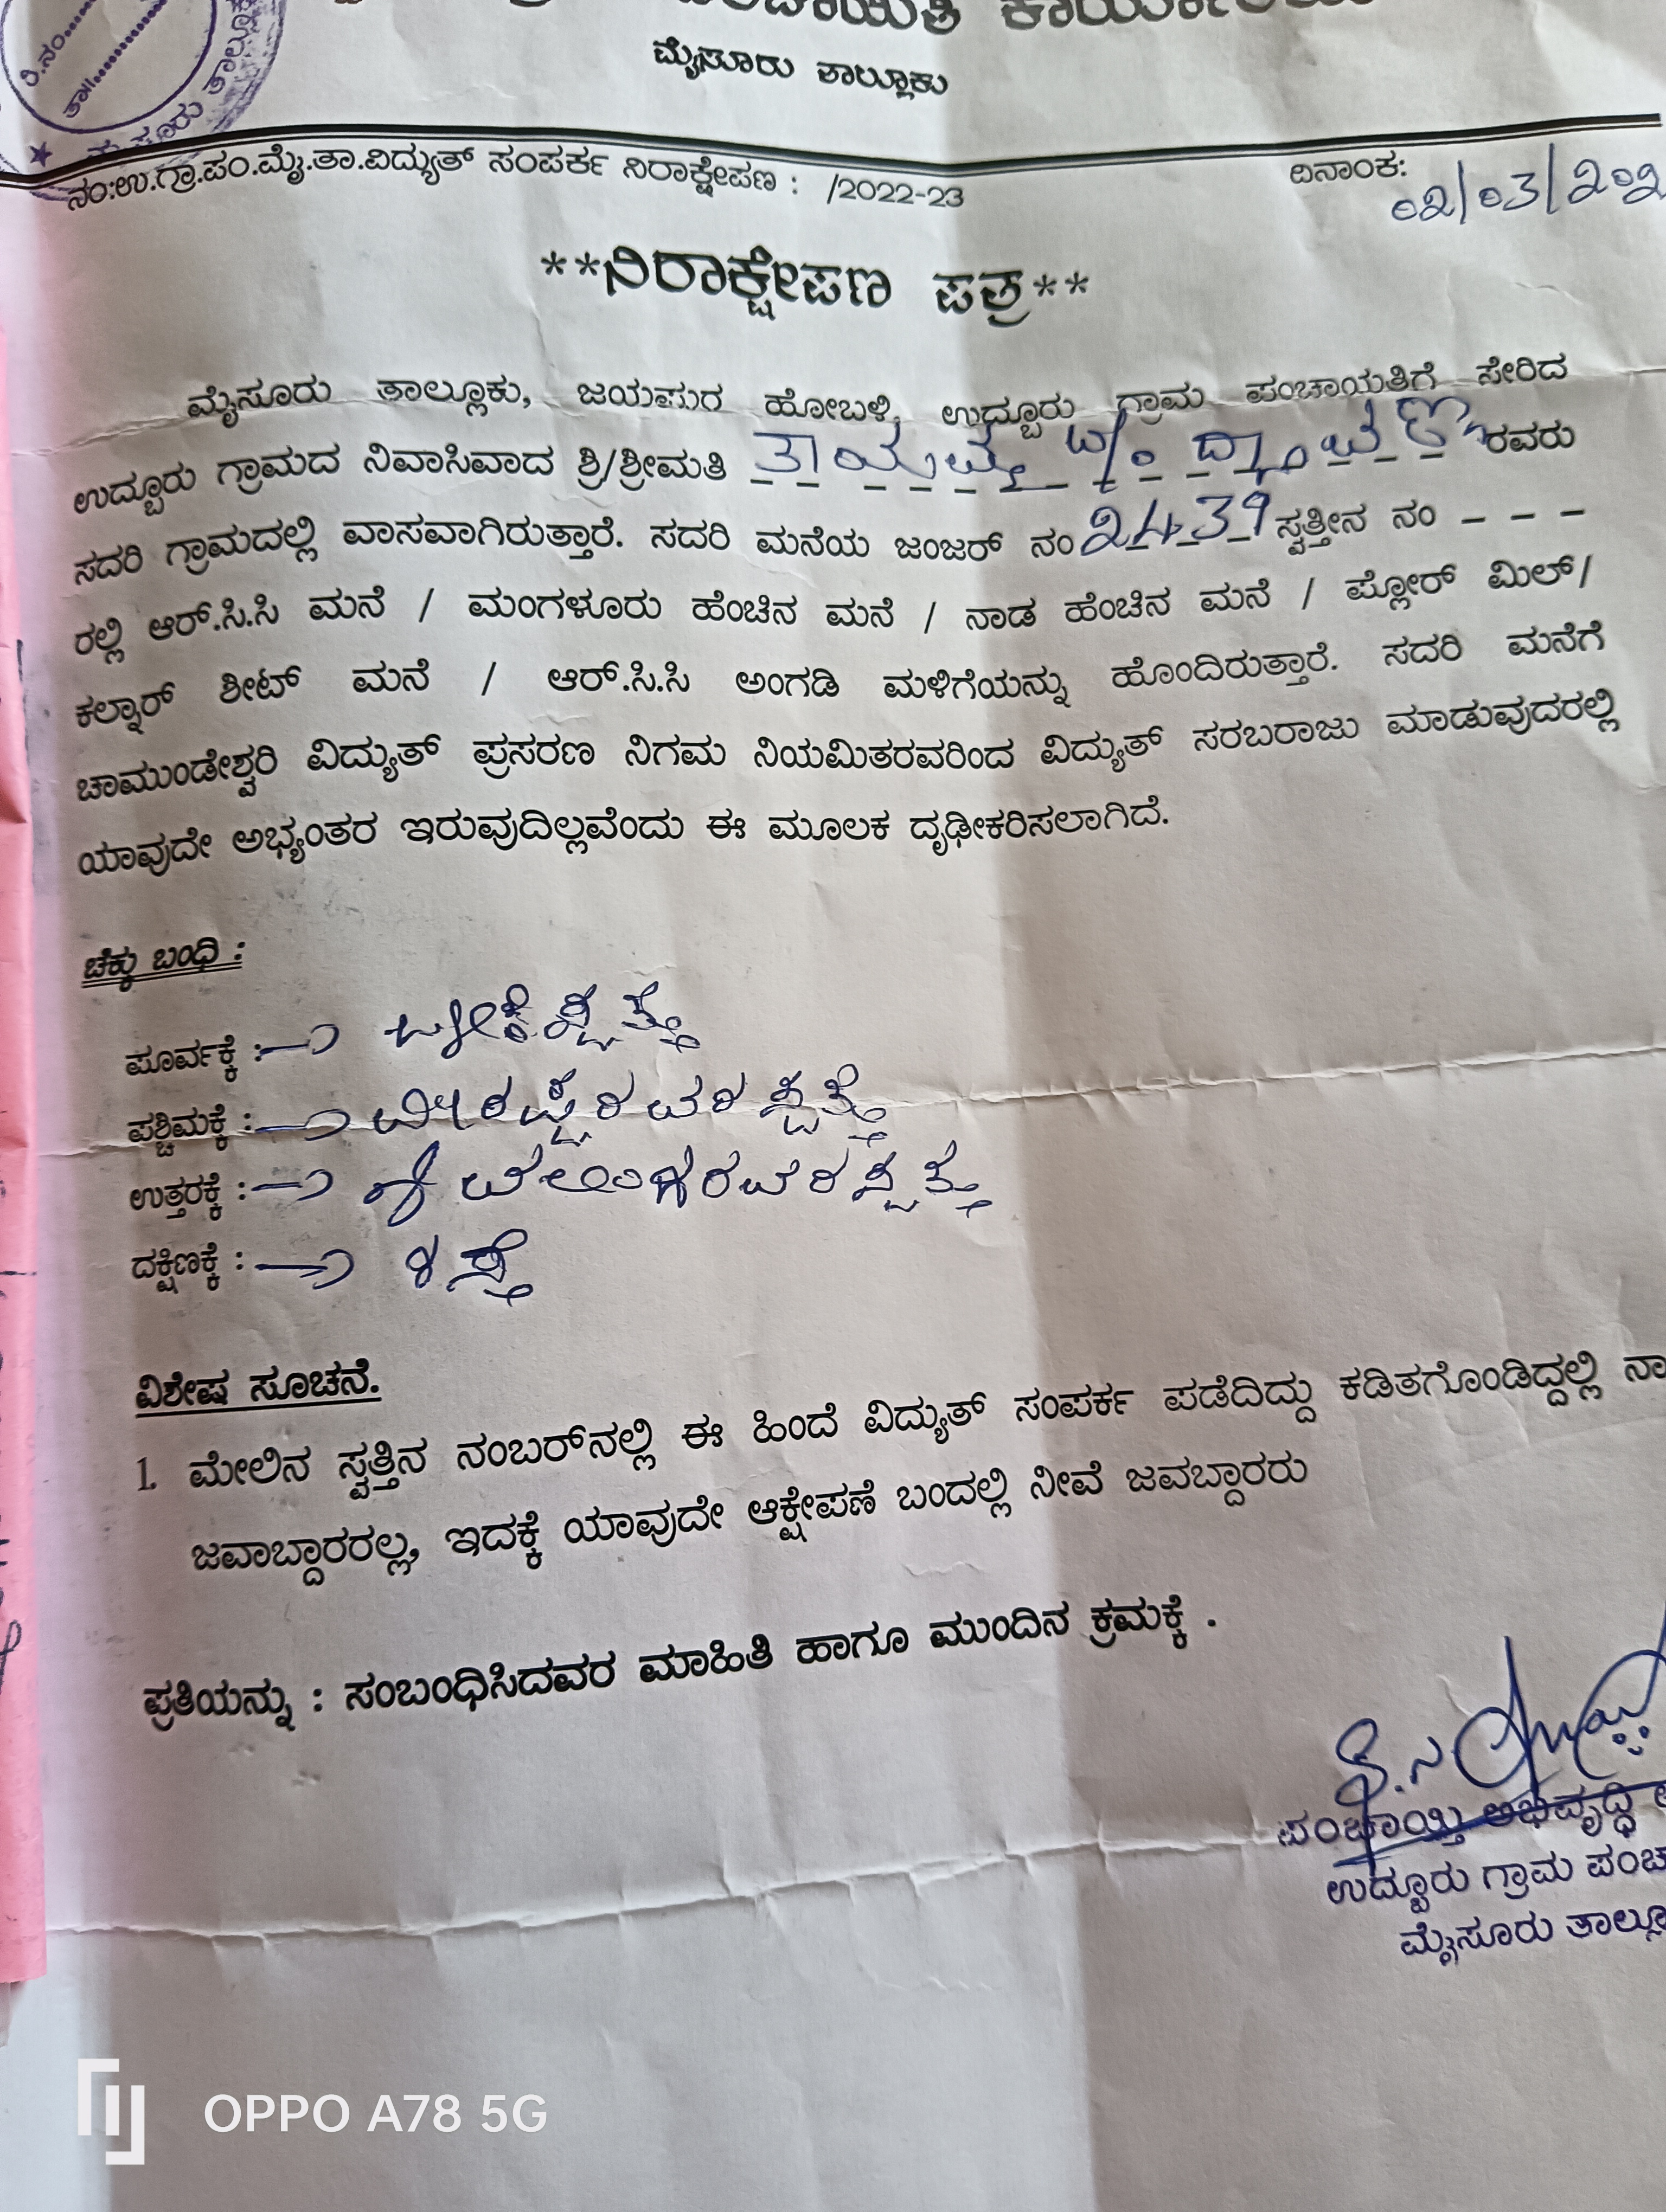 ಮೈಸೂರು ತಾಲ್ಲೂಕು
ರಿ.ನಂ......
ತಾ||..........
ನಂ:ಉ.ಗ್ರಾ.ಪಂ.ಮೈ.ತಾ.ವಿದ್ಯುತ್ ಸಂಪರ್ಕ ನಿರಾಕ್ಷೇಪಣ : /2022-23
ದಿನಾಂಕ: 02/03/202
**ನಿರಾಕ್ಷೇಪಣ ಪತ್ರ**
ಮೈಸೂರು ತಾಲ್ಲೂಕು, ಜಯಪುರ ಹೋಬಳಿ, ಉದ್ಬೂರು ಗ್ರಾಮ ಪಂಚಾಯತಿಗೆ ಸೇರಿದ
ಉದ್ಬೂರು ಗ್ರಾಮದ ನಿವಾಸಿವಾದ ಶ್ರಿ/ಶ್ರೀಮತಿ ತಾಯಮ್ಮ ರವರು
ಸದರಿ ಗ್ರಾಮದಲ್ಲಿ ವಾಸವಾಗಿರುತ್ತಾರೆ. ಸದರಿ ಮನೆಯ ಜಂಜರ್ ನಂ 2439 ಸ್ವತ್ತೀನ ನಂ – – –
ರಲ್ಲಿ ಆರ್.ಸಿ.ಸಿ ಮನೆ / ಮಂಗಳೂರು ಹೆಂಚಿನ ಮನೆ / ನಾಡ ಹೆಂಚಿನ ಮನೆ / ಪ್ಲೋರ್ ಮಿಲ್/
ಕಲ್ನಾರ್ ಶೀಟ್ ಮನೆ / ಆರ್.ಸಿ.ಸಿ ಅಂಗಡಿ ಮಳಿಗೆಯನ್ನು ಹೊಂದಿರುತ್ತಾರೆ. ಸದರಿ ಮನೆಗೆ
ಚಾಮುಂಡೇಶ್ವರಿ ವಿದ್ಯುತ್ ಪ್ರಸರಣ ನಿಗಮ ನಿಯಮಿತರವರಿಂದ ವಿದ್ಯುತ್ ಸರಬರಾಜು ಮಾಡುವುದರಲ್ಲಿ
ಯಾವುದೇ ಅಭ್ಯಂತರ ಇರುವುದಿಲ್ಲವೆಂದು ಈ ಮೂಲಕ ದೃಢೀಕರಿಸಲಾಗಿದೆ.
ಚೆಕ್ಕು ಬಂಧಿ :
ಪೂರ್ವಕ್ಕೆ :
ಪಶ್ಚಿಮಕ್ಕೆ : ರವರ ಸ್ವತ್ತು
ಉತ್ತರಕ್ಕೆ : ರವರ ಸ್ವತ್ತು
ದಕ್ಷಿಣಕ್ಕೆ : ರಸ್ತೆ
ವಿಶೇಷ ಸೂಚನೆ.
1. ಮೇಲಿನ ಸ್ವತ್ತಿನ ನಂಬರ್‌ನಲ್ಲಿ ಈ ಹಿಂದೆ ವಿದ್ಯುತ್ ಸಂಪರ್ಕ ಪಡೆದಿದ್ದು ಕಡಿತಗೊಂಡಿದ್ದಲ್ಲಿ ನಾ
ಜವಾಬ್ದಾರರಲ್ಲ, ಇದಕ್ಕೆ ಯಾವುದೇ ಆಕ್ಷೇಪಣೆ ಬಂದಲ್ಲಿ ನೀವೆ ಜವಬ್ದಾರರು
ಪ್ರತಿಯನ್ನು : ಸಂಬಂಧಿಸಿದವರ ಮಾಹಿತಿ ಹಾಗೂ ಮುಂದಿನ ಕ್ರಮಕ್ಕೆ .
ಪಂಚಾಯ್ತಿ ಅಭಿವೃದ್ಧಿ
ಉದ್ಬೂರು ಗ್ರಾಮ ಪಂಚ
ಮೈಸೂರು ತಾಲ್ಲೂ
OPPO A78 5G